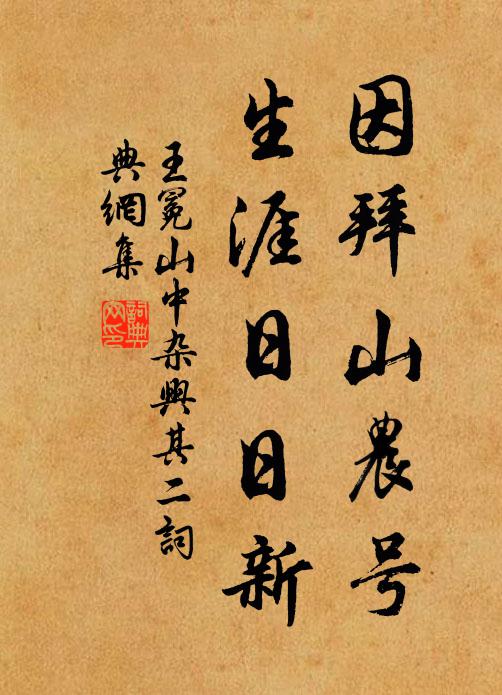 因拜山農号
生涯日日新
王冕山中杂興其二詞
典網集
詞典
网印